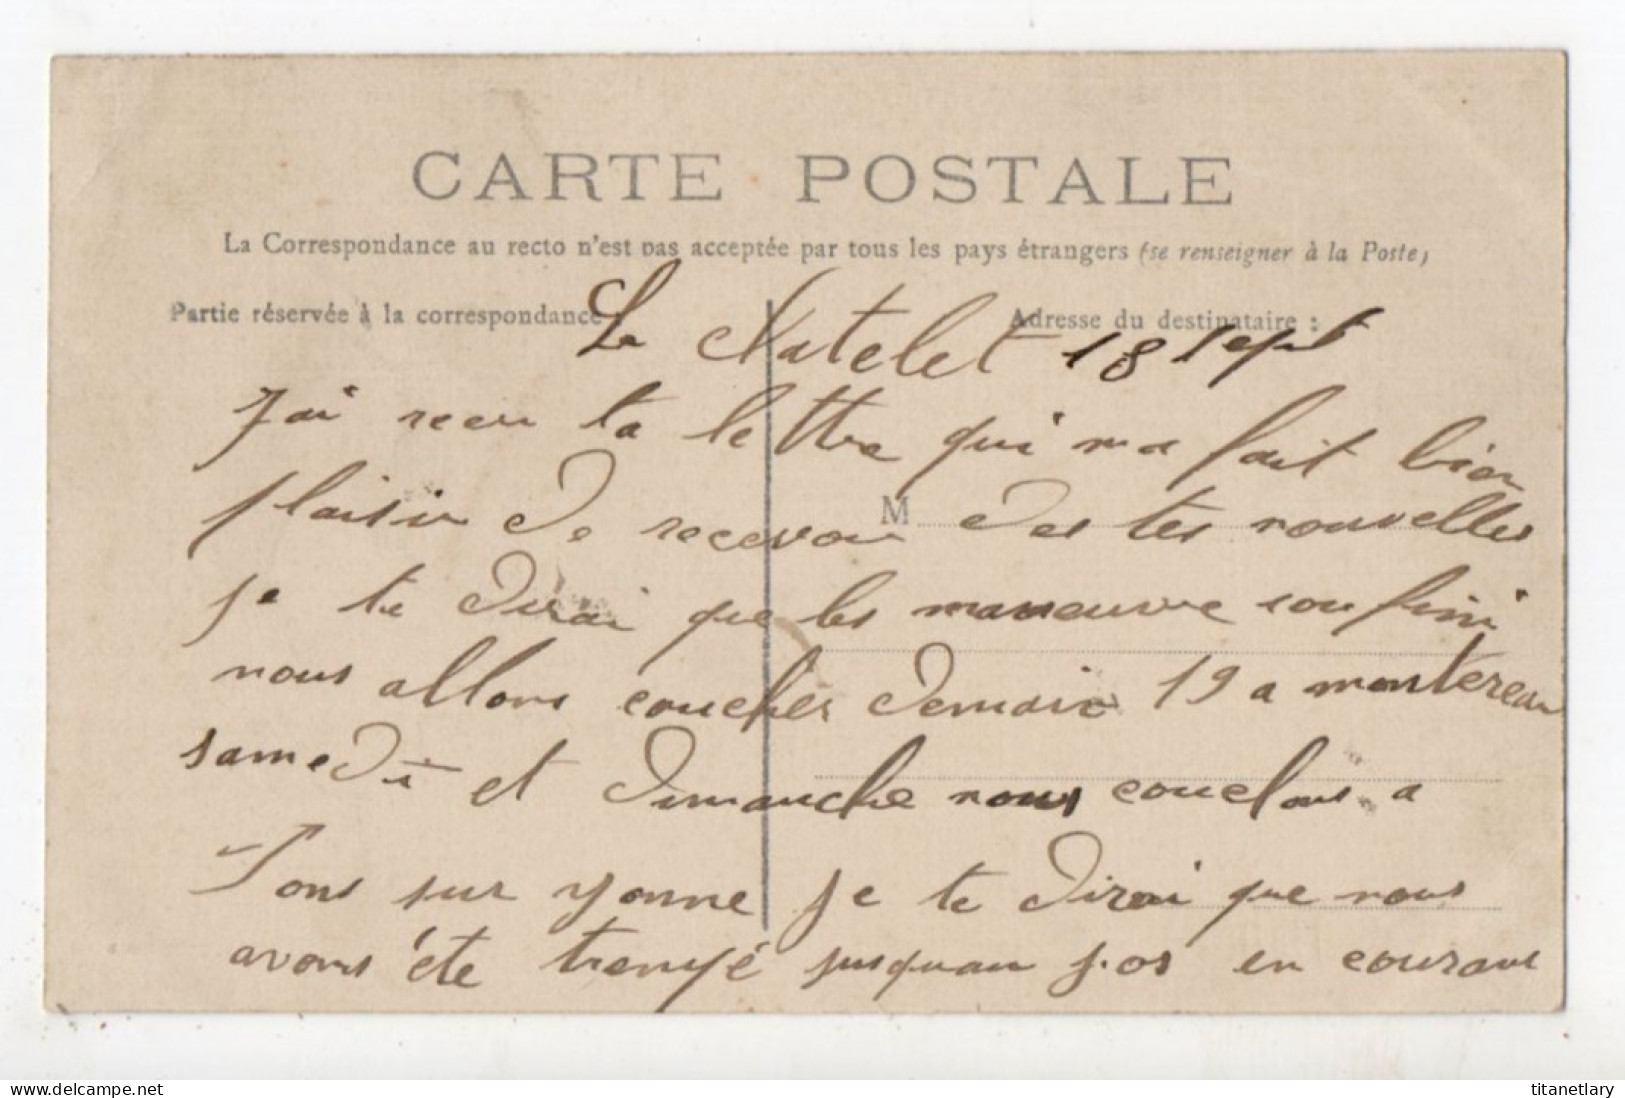 CARTE POSTALE
La Correspondance au recto n'est pas acceptée par tous les pays étrangers (se renseigner à la Poste)
Partie réservée à la correspondance
Adresse du destinataire :
Le Chatelet 18 Sept
J'ai recu ta lettre qui ma fait bien
plaisir de recevoir des tes nouvelles
M
je te dirai que les maneuvre son fini
nous allons coucher demain 19 a montereau
samedi et dimanche nous couchons a
Pons sur yonne je te dirai que nous
avons été trempé jusquau s os en courant
www.delcampe.net
titanetlary